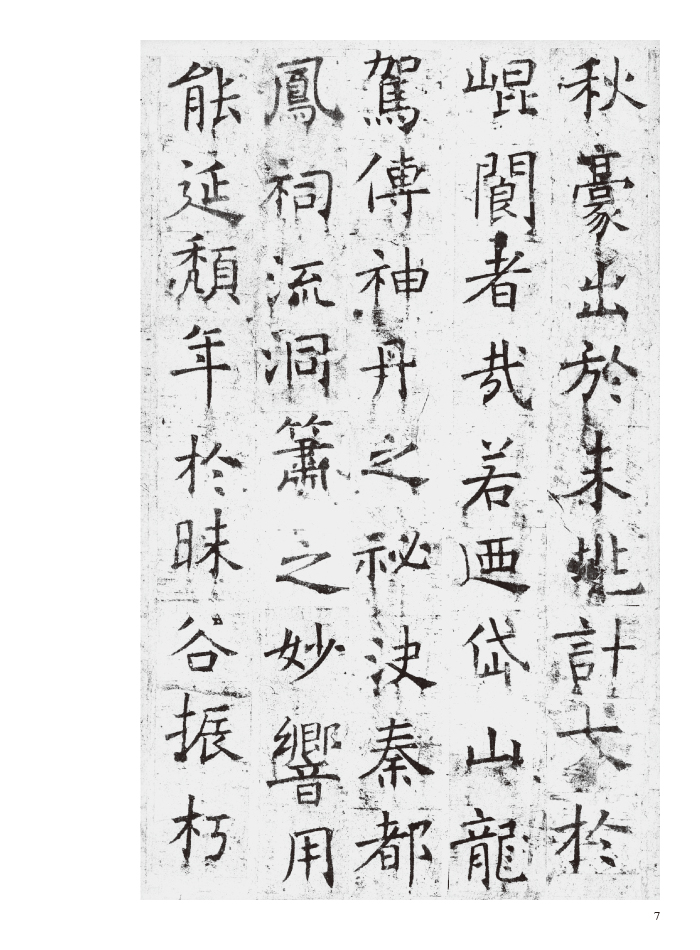 秋豪出於未兆計大於
崐閬者哉若迺岱山龍
駕傳神丹之祕決秦都
鳳祠流洞簫之妙響用
能延頹年於昧谷振朽
7